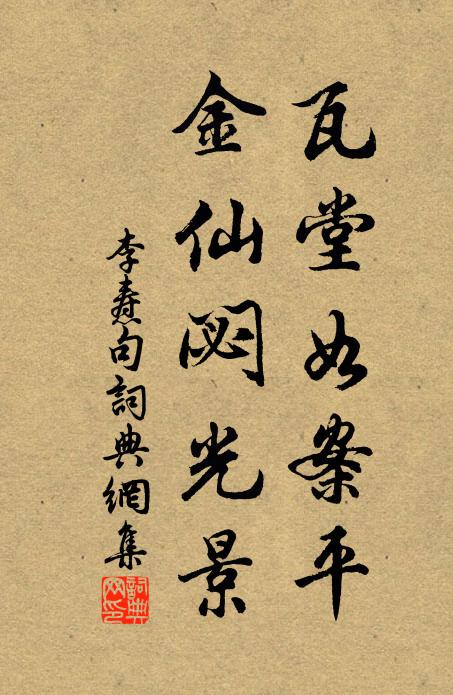 瓦堂如案平
金仙閟光景
李焘句詞典網集
詞典网印